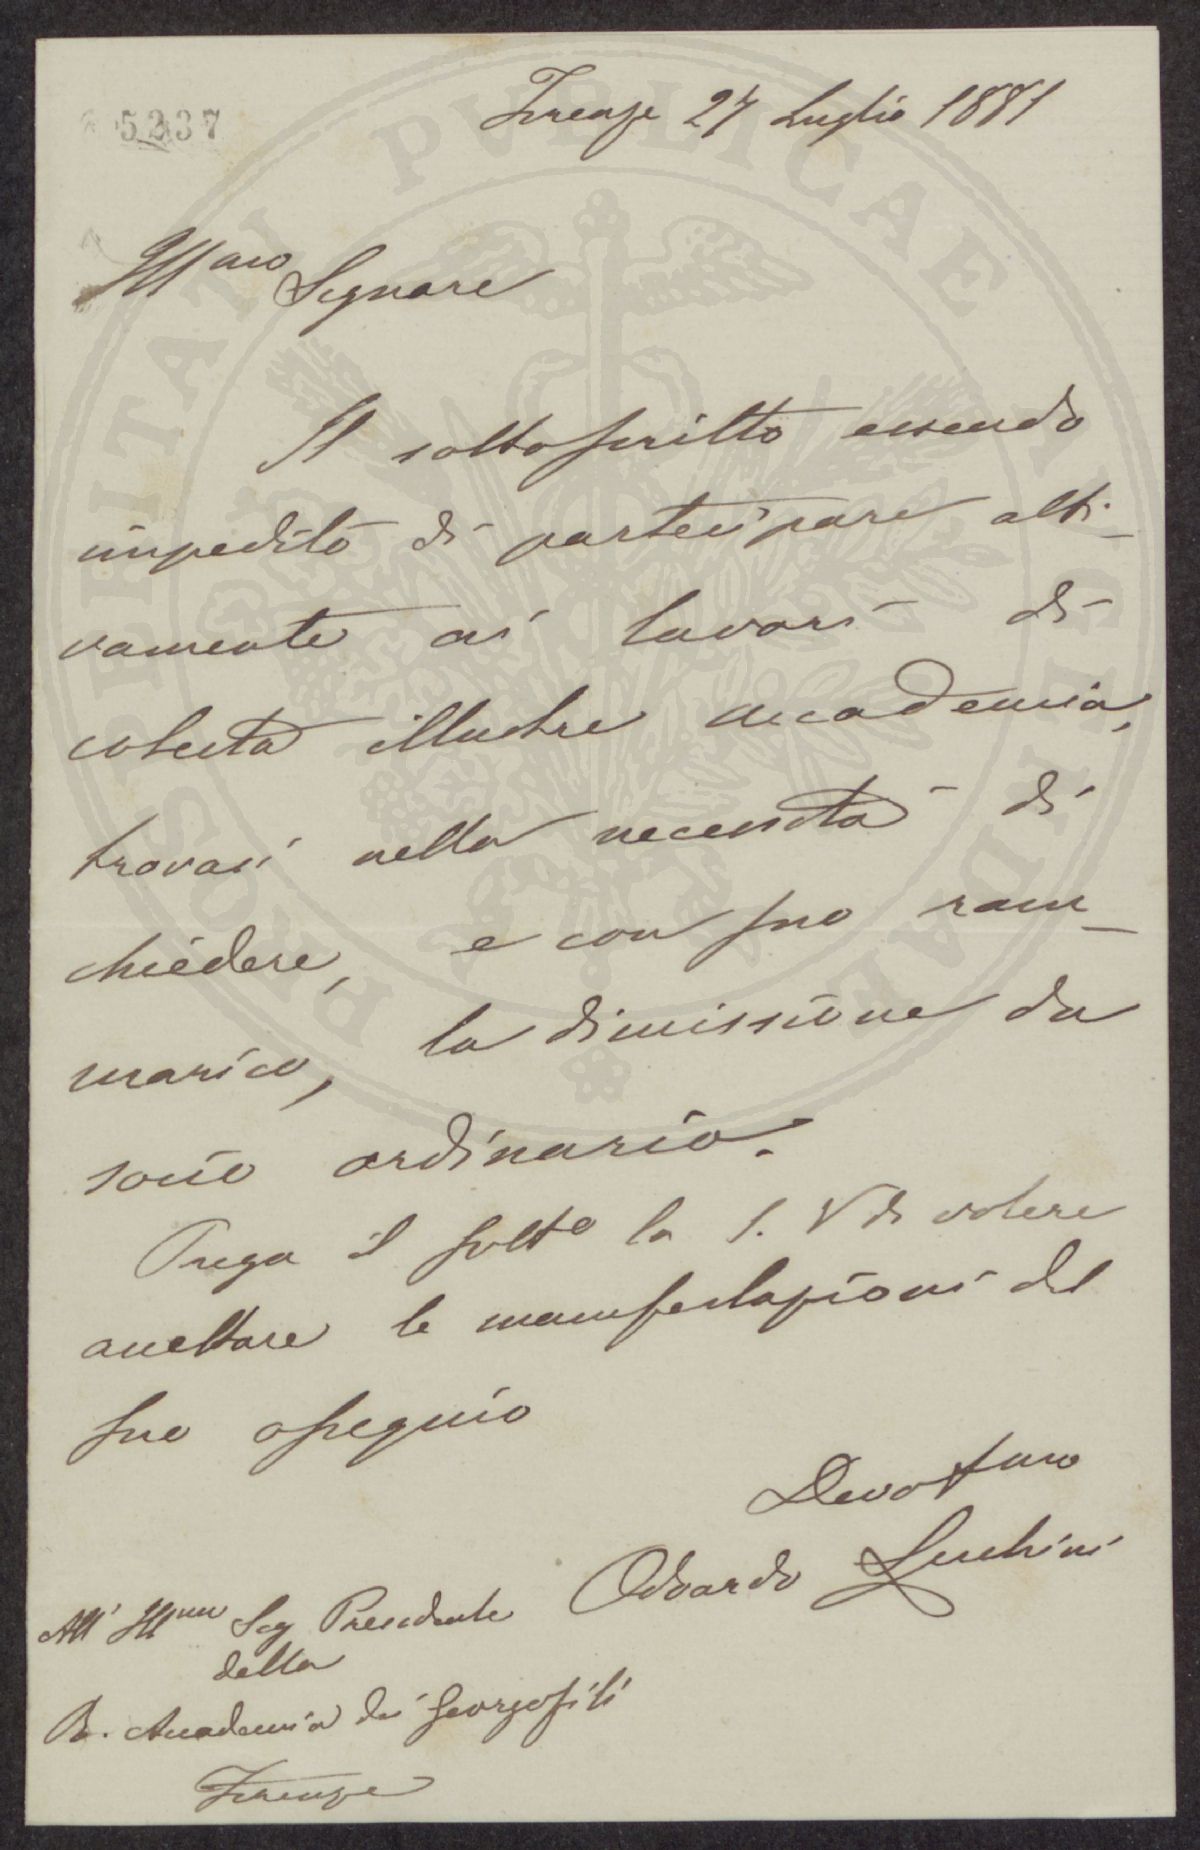 5237
Firenze 27 Luglio 1881
Ill^mo Signore
Il sottoscritto essendo
impedito di partecipare atti-
vamente ai lavori di
cotesta illustre accademia,
trovasi nella necessità di
chiedere, e con suo ram-
marico, la dimissione da
socio ordinario.
Prega il sott^o la S. V di volere
accettare le manifestazioni del
suo ossequio
Devot^smo
Odoardo Luchini
All' Ill^mo Sig Presidente
della
R. Accademia dei Georgofili
Firenze
PROSPERITATI PVBLICAE AVGENDAE